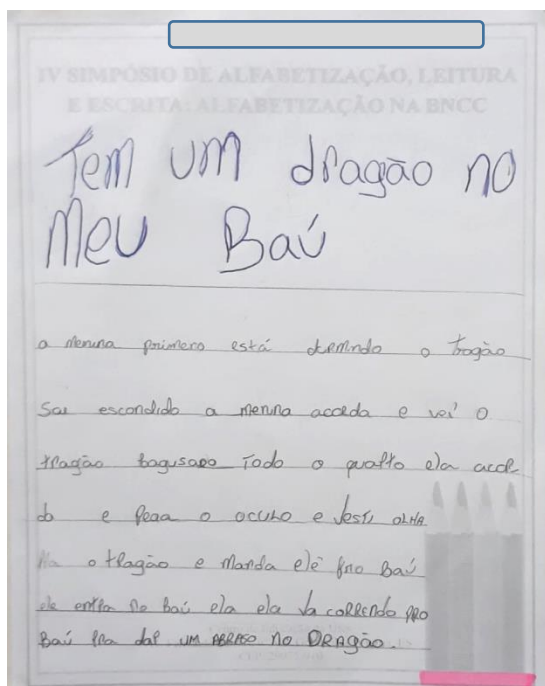 IV SIMPÓSIO DE ALFABETIZAÇÃO, LEITURA
E ESCRITA: ALFABETIZAÇÃO NA BNCC
Tem um dragão no
Meu Baú
a menina primero está dormindo o tragão
sai escondido a menina acorda e vei o
tragão bagusado todo o quarto ela acor
do e pega o oculo e vesti olha
o tragão e manda ele pro Baú
ele entra no Baú ela ela va correndo pro
Baú pra dar um abraso no Dragão.